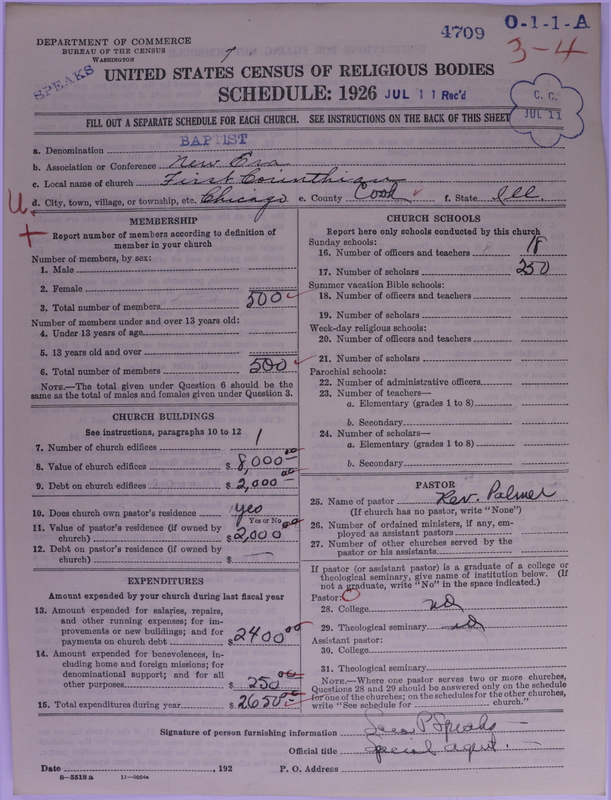 DEPARTMENT OF COMMERCE
BUREAU OF THE CENSUS
WASHINGTON
SPEAKS
4709
O-1-1-A
3-4
UNITED STATES CENSUS OF RELIGIOUS BODIES
SCHEDULE: 1926
JUL 11 Rec'd
C. C.
JUL 11
FILL OUT A SEPARATE SCHEDULE FOR EACH CHURCH. SEE INSTRUCTIONS ON THE BACK OF THIS SHEET
a. Denomination BAPTIST
b. Association or Conference New Era
c. Local name of church First Corinthian
d. City, town, village, or township, etc. Chicago e. County Cook f. State Ill.
U.
MEMBERSHIP
Report number of members according to definition of
member in your church
Number of members, by sex:
1. Male
2. Female
3. Total number of members 500
Number of members under and over 13 years old:
4. Under 13 years of age
5. 13 years old and over
6. Total number of members 500
NOTE.—The total given under Question 6 should be the
same as the total of males and females given under Question 3.
CHURCH BUILDINGS
See instructions, paragraphs 10 to 12
7. Number of church edifices 1
8. Value of church edifices $8,000.00
9. Debt on church edifices $2,000.00
10. Does church own pastor's residence yes
Yes or No
11. Value of pastor's residence (if owned by
church) $2,000.00
12. Debt on pastor's residence (if owned by
church) $
EXPENDITURES
Amount expended by your church during last fiscal year
13. Amount expended for salaries, repairs,
and other running expenses; for im-
provements or new buildings; and for
payments on church debt $2400.00
14. Amount expended for benevolences, in-
cluding home and foreign missions; for
denominational support; and for all
other purposes $250.00
15. Total expenditures during year $2650.00
CHURCH SCHOOLS
Report here only schools conducted by this church
Sunday schools:
16. Number of officers and teachers 18
17. Number of scholars 250
Summer vacation Bible schools:
18. Number of officers and teachers
19. Number of scholars
Week-day religious schools:
20. Number of officers and teachers
21. Number of scholars
Parochial schools:
22. Number of administrative officers
23. Number of teachers—
a. Elementary (grades 1 to 8)
b. Secondary
24. Number of scholars—
a. Elementary (grades 1 to 8)
b. Secondary
PASTOR
25. Name of pastor Rev. Palmer
(If church has no pastor, write "None")
26. Number of ordained ministers, if any, em-
ployed as assistant pastors
27. Number of other churches served by the
pastor or his assistants
If pastor (or assistant pastor) is a graduate of a college or
theological seminary, give name of institution below. (If
not a graduate, write "No" in the space indicated.)
Pastor:
28. College no
29. Theological seminary no
Assistant pastor:
30. College
31. Theological seminary
NOTE.—Where one pastor serves two or more churches,
Questions 28 and 29 should be answered only on the schedule
for one of the churches; on the schedules for the other churches,
write "See schedule for church."
Signature of person furnishing information P. Speaks
Official title Special agent.
Date , 192 P. O. Address
8-5518 a 11-9054a